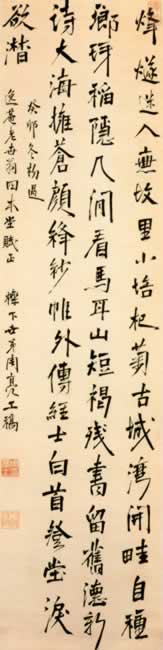 烽燧人無故里小培杞菊古城灣開畦自種
瑯玡稻隱几間看馬耳山短褐殘書留舊德新
詩大海擁蒼顏絳紗帷外傳經士白首登堂淚
欲潸
癸卯冬杪過
逸菴老世翁日來堂賦正
櫟下世弟周亮工稿